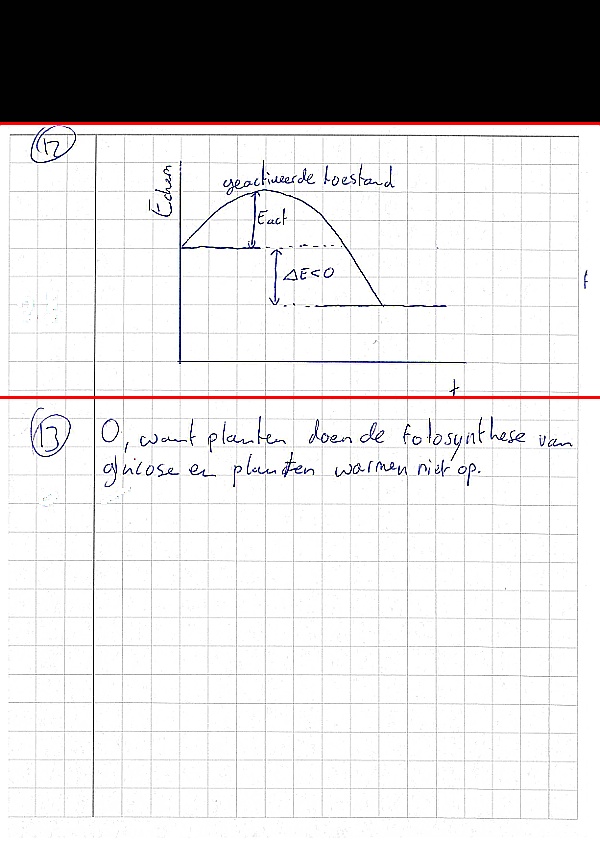 12
Echem
geactiveerde toestand
Eact
ΔE<0
t
13
O, want planten doen de fotosynthese van
glucose en planten warmen niet op.